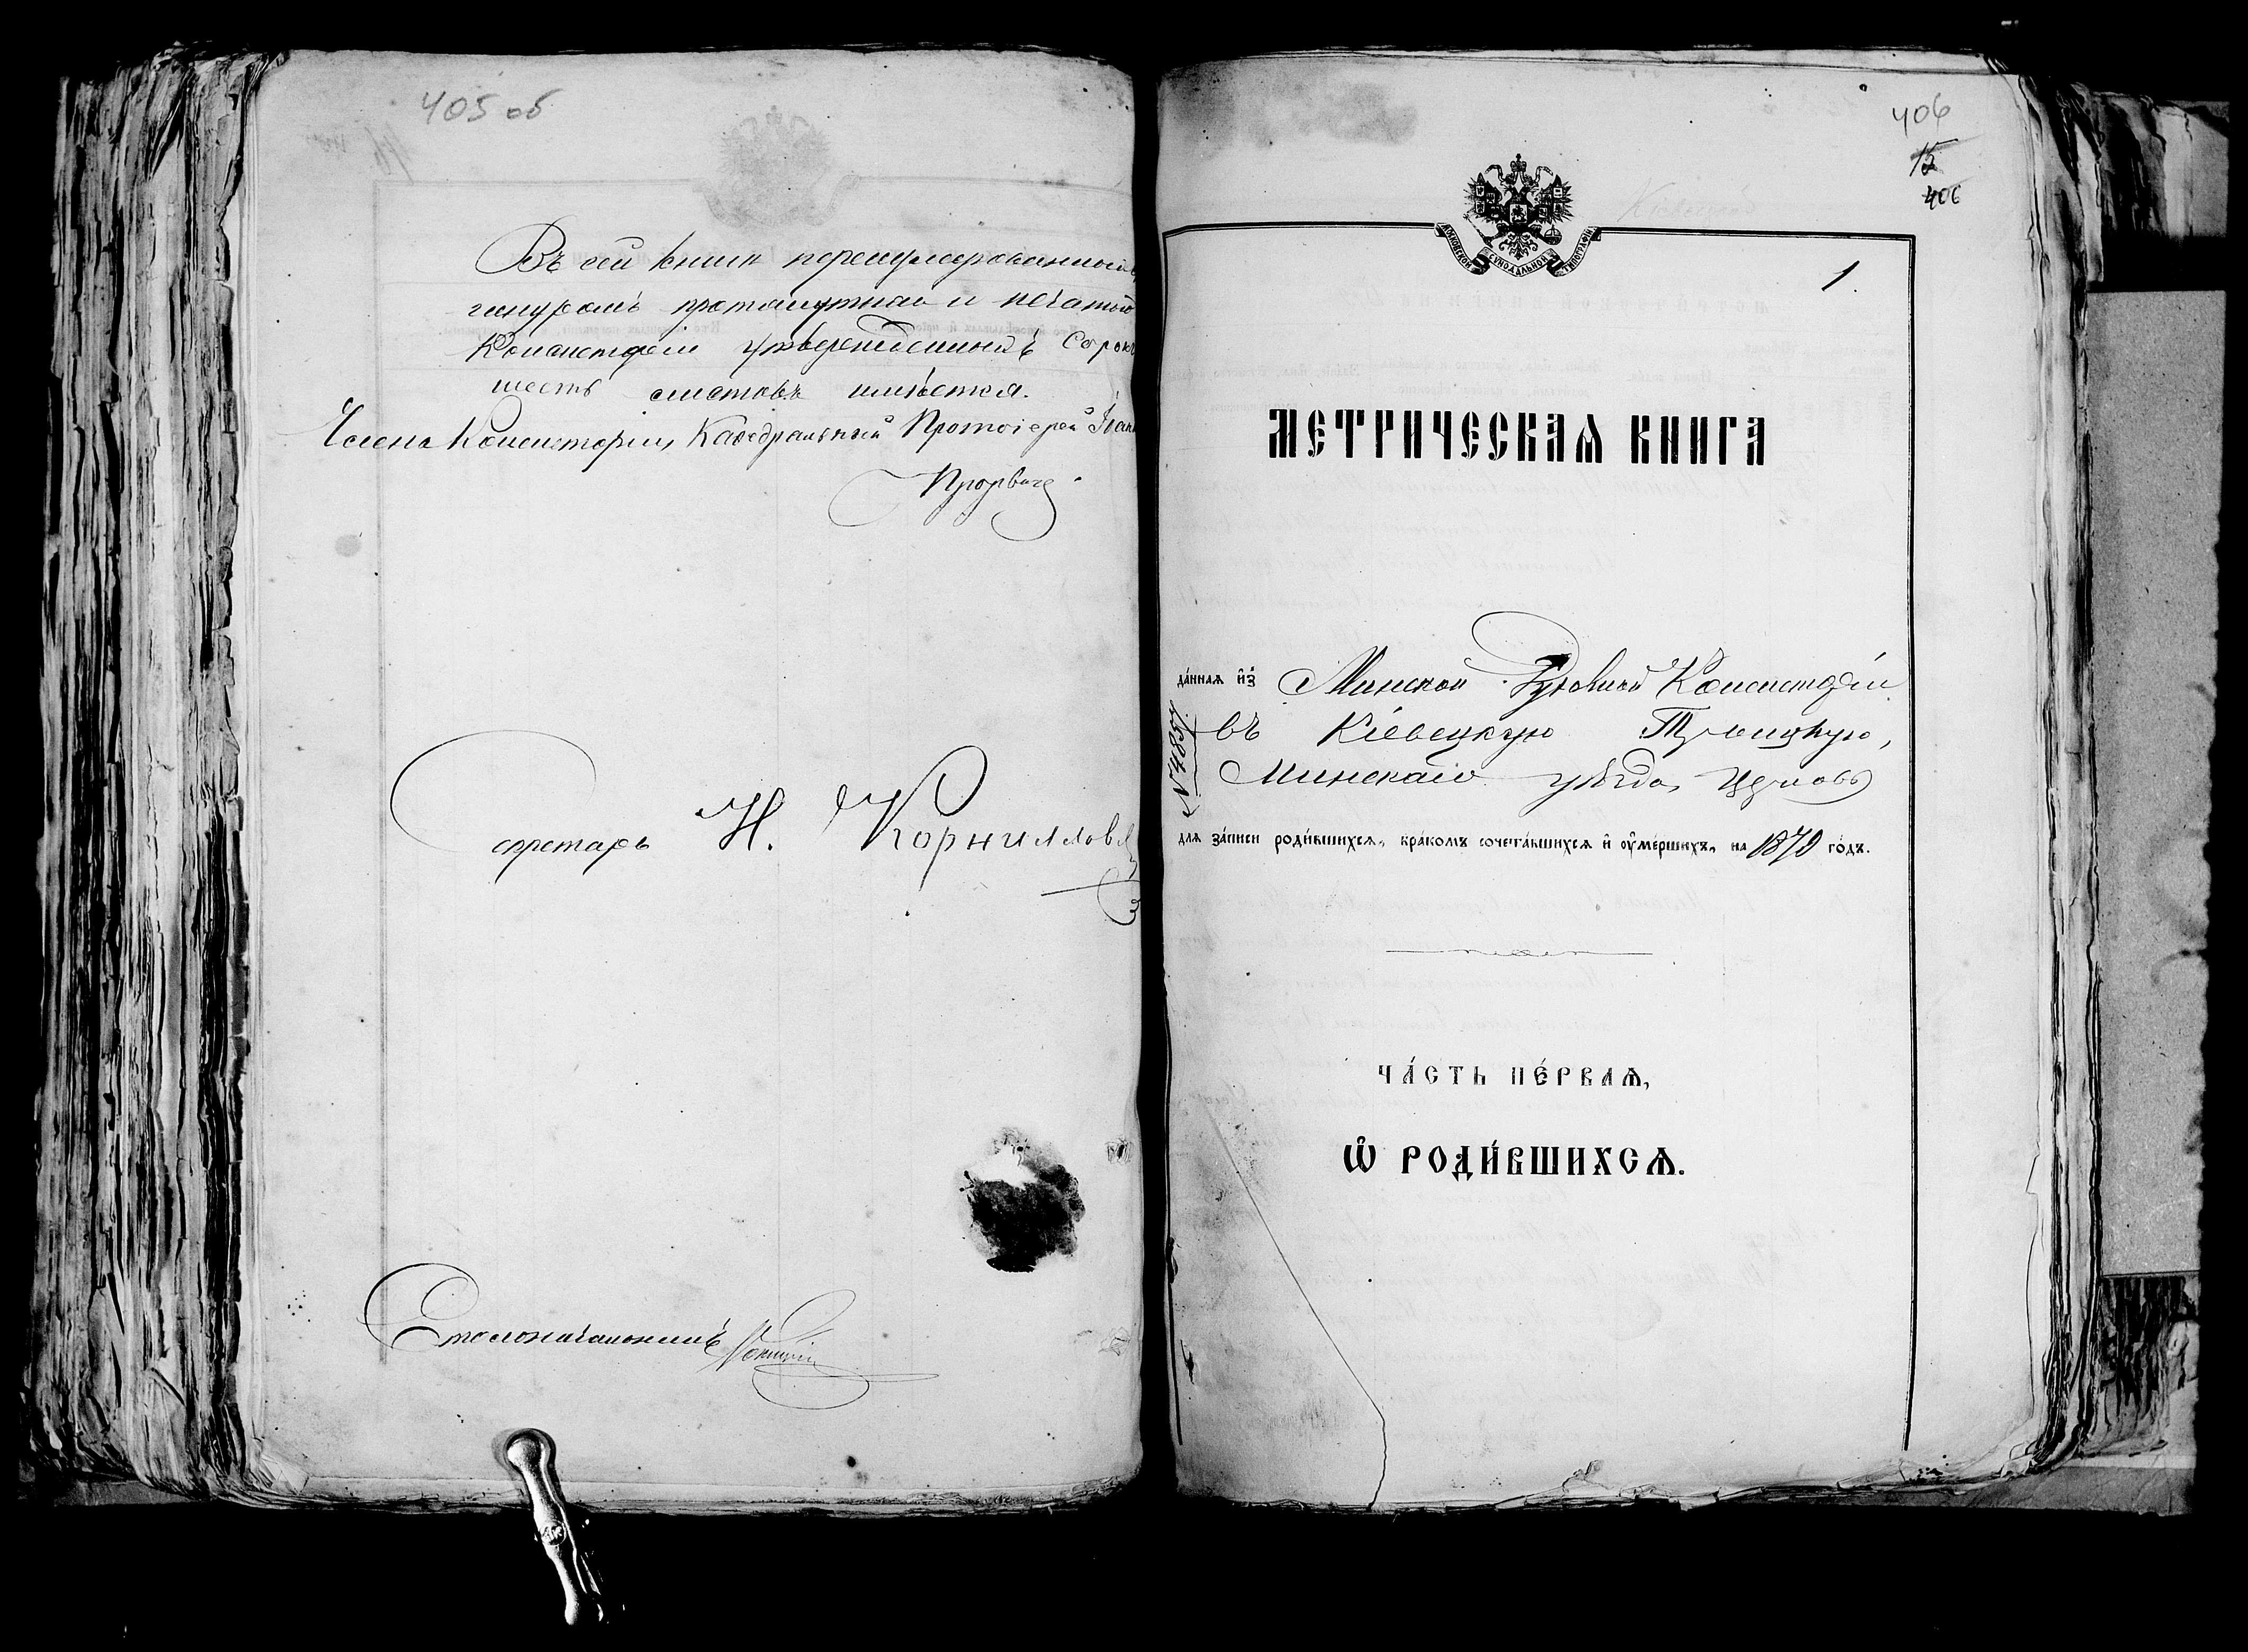 405 об
Въ сей книгѣ перенумерованныхъ
шнуромъ прошнутная и печатью
Консисторіи утвержденныхъ Сорокъ
шесть листовъ имѣется.
Членъ Консисторіи, Каѳедральный Протоіерей
Секретарь Н. Корниловъ
Столоначальникъ
406
15
406
МОСКОВСКОЙ СѴНОДАЛЬНОЙ ТИПОГРАФІИ
1.
МЕТРИЧЕСКАѦ КНИГА
да́ннаѧ и҆з̾ Минской Духовной Консисторіи
въ Кіевецкую Троицкую,
Минскаго уѣзда, Церковь
№ 4851
длѧ за́писи роди́вшихсѧ, бра́комъ сочета́вшихсѧ и҆ ᲂу҆ме́ршихъ, на 1870 го́дъ.
ЧА́СТЬ ПЕ́РВАѦ,
Ѽ РОДИ́ВШИХСѦ.